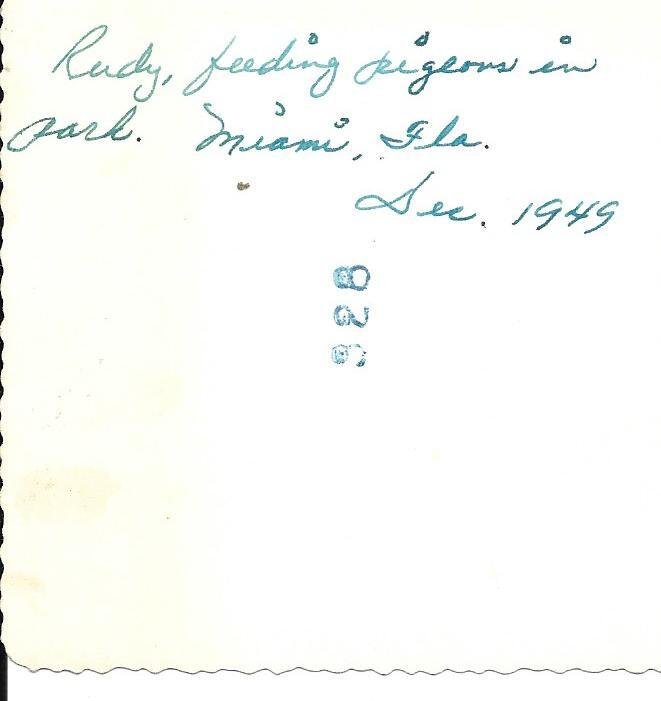 Rudy, feeding pigeons in
park. Miami, Fla.
Dec. 1949
328